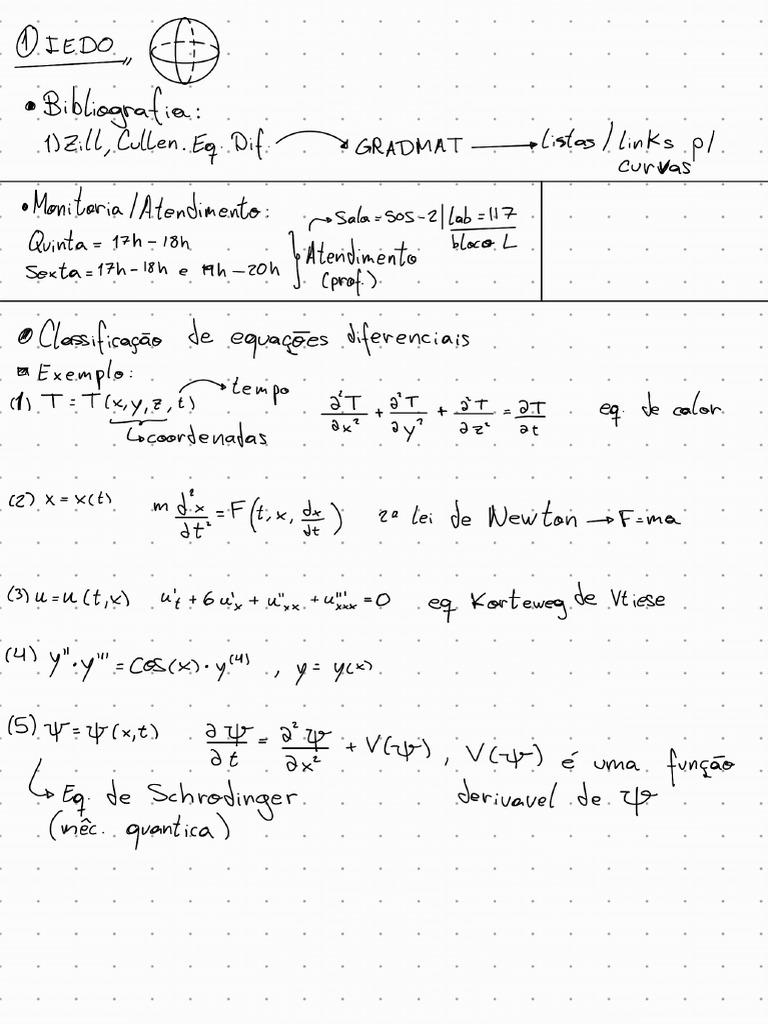 ① IEDO
• Bibliografia:
1) Zill, Cullen. Eq. Dif. → GRADMAT → listas / links p/ curvas
• Monitoria / Atendimento:
Quinta = 17h - 18h
Sexta = 17h - 18h e 19h - 20h } Atendimento (prof.)
→ Sala = SOS - 2 | Lab = 117
bloco L
• Classificação de equações diferenciais
Exemplo:
(1) T = T(x, y, z, t) → tempo
↳ coordenadas
∂²T/∂x² + ∂²T/∂y² + ∂²T/∂z² = ∂T/∂t eq. de calor
(2) x = x(t) m d²x/dt² = F(t, x, dx/dt) 2ª lei de Newton → F = ma
(3) u = u(t, x) u'ₜ + 6u'ₓ + u''ₓₓ + u'''ₓₓₓ = 0 eq Korteweg de Vtiese
(4) y'' · y''' = cos(x) · y⁽⁴⁾ , y = y(x)
(5) ψ = ψ(x, t) ∂ψ/∂t = ∂²ψ/∂x² + V(ψ) , V(ψ) é uma função
derivavel de ψ
↳ Eq. de Schrodinger
(mêc. quantica)